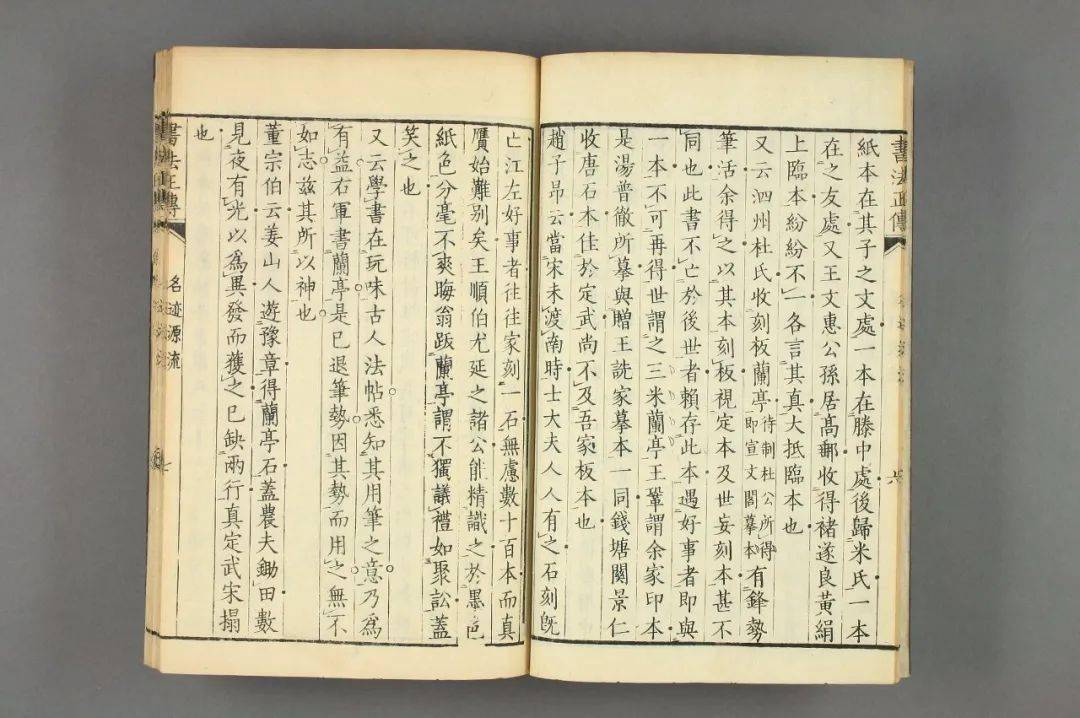 書法正傳
六
紙本在其子之文處一本在滕中處後歸米氏一本
在之友處又王文惠公孫居高郵收得褚遂良黃絹
上臨本紛紛不一各言其真大抵臨本也
又云泗州杜氏收刻板蘭亭待制杜公所得即宣文閣摹本有鋒勢
筆活余得之以其本刻板視定本及世妄刻本甚不
同也此書不亡於後世者賴存此本遇好事者即與
一本不可再得世謂之三米蘭亭王鞏謂余家印本
是湯普徹所摹與贈王詵家摹本一同錢塘関景仁
收唐石本佳於定武尚不及吾家板本也
趙子昂云當宋未渡南時士大夫人人有之石刻旣
亡江左好事者往往家刻一石無慮數十百本而真
贗始難别矣王順伯尤延之諸公能精識之於墨色
紙色分毫不爽晦翁跋蘭亭謂不獨議禮如聚訟蓋
笑之也
又云學書在玩味古人法帖悉知其用筆之意乃為
有益右軍書蘭亭是已退筆勢因其勢而用之無不
如志茲其所以神也
董宗伯云姜山人遊豫章得蘭亭石蓋農夫鋤田數
見夜有光以為異發而獲之已缺兩行真定武宋搨
也
書法正傳
名迹源流
七